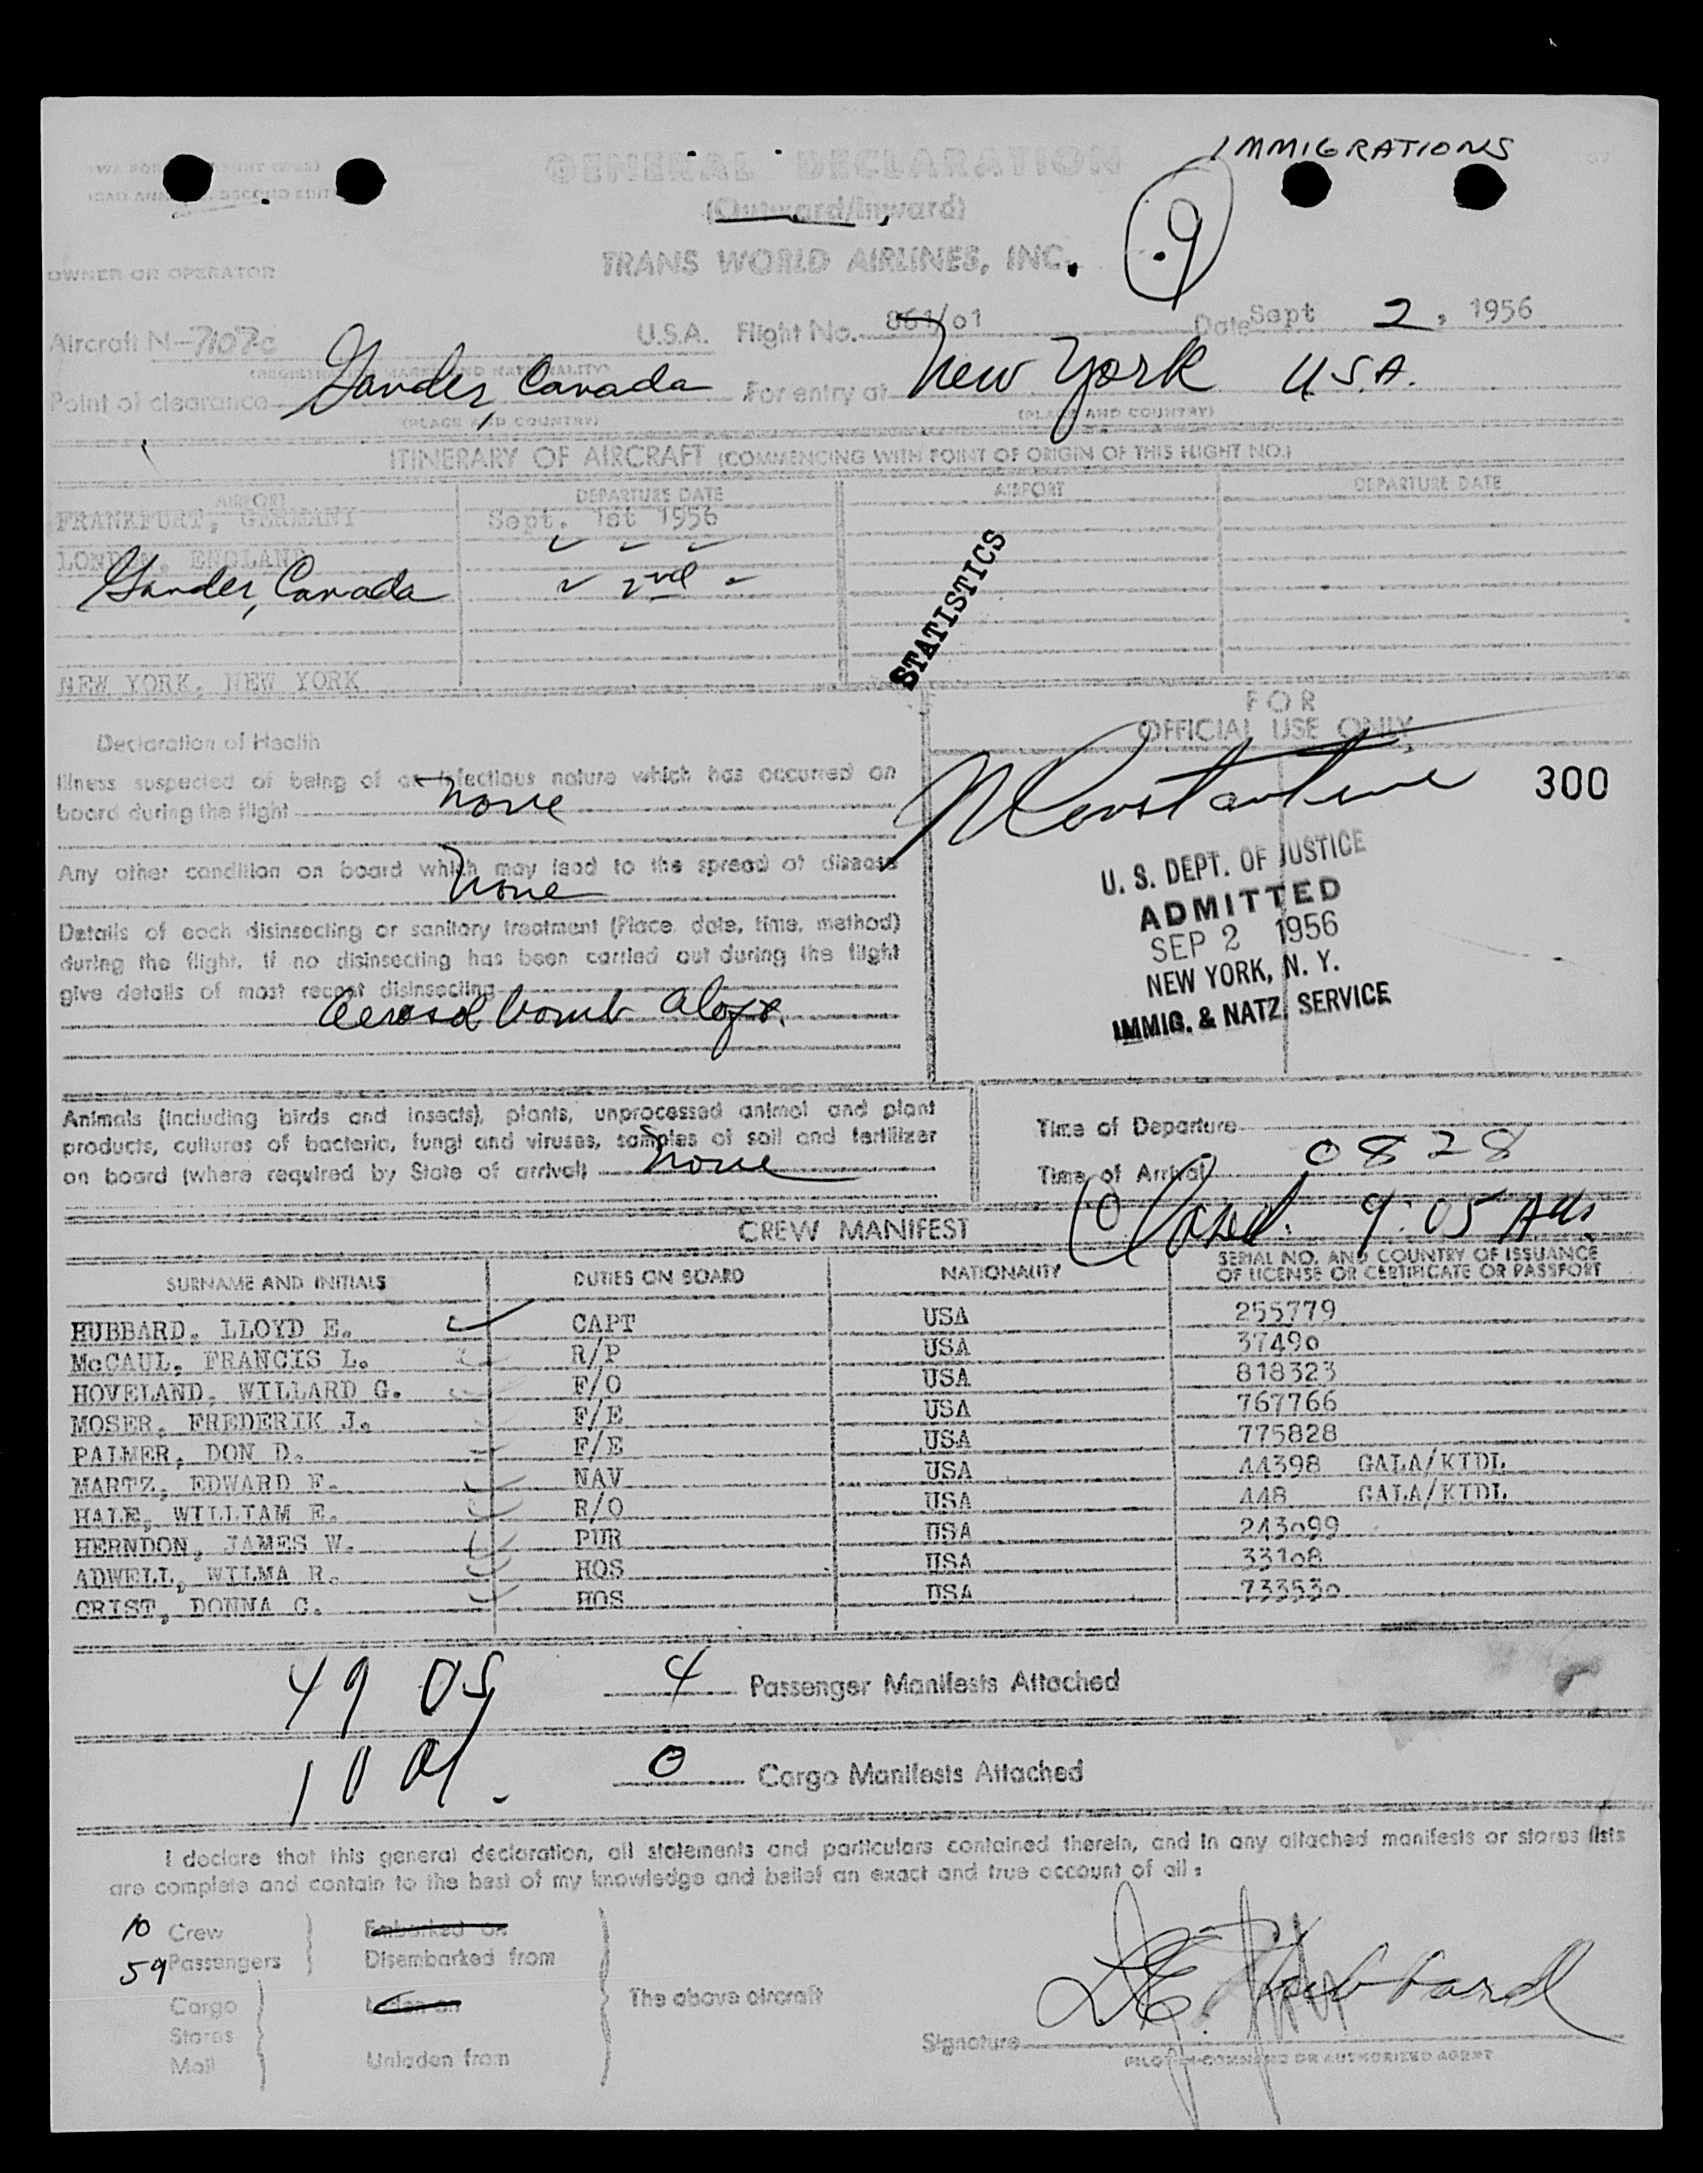 IMMIGRATIONS
GENERAL DECLARATION
(Outward/Inward)
9
TRANS WORLD AIRLINES, INC.
OWNER OR OPERATOR
Aircraft N-7107C U.S.A. Flight No. 861/01 Date Sept 2, 1956
(REGISTRATION MARKS AND NATIONALITY)
Point of clearance Gander, Canada For entry at New York U.S.A.
(PLACE AND COUNTRY) (PLACE AND COUNTRY)
ITINERARY OF AIRCRAFT (COMMENCING WITH POINT OF ORIGIN OF THIS FLIGHT NO.)
AIRPORT DEPARTURE DATE AIRPORT DEPARTURE DATE
FRANKFURT, GERMANY Sept. 1st 1956
LONDON, ENGLAND
Gander, Canada 2nd
STATISTICS
NEW YORK, NEW YORK
FOR
OFFICIAL USE ONLY
Declaration of Health
Illness suspected of being of an infectious nature which has occurred on
board during the flight none
300
Any other condition on board which may lead to the spread of disease
none
U. S. DEPT. OF JUSTICE
ADMITTED
SEP 2 1956
NEW YORK, N. Y.
IMMIG. & NATZ. SERVICE
Details of each disinsecting or sanitary treatment (Place, date, time, method)
during the flight. If no disinsecting has been carried out during the flight
give details of most recent disinsecting
Aerosol bomb
Animals (including birds and insects), plants, unprocessed animal and plant
products, cultures of bacteria, fungi and viruses, samples of soil and fertilizer
on board (where required by State of arrival) none
Time of Departure
Time of Arrival 0828
9:05 AM
CREW MANIFEST
SURNAME AND INITIALS DUTIES ON BOARD NATIONALITY SERIAL NO. AND COUNTRY OF ISSUANCE
OF LICENSE OR CERTIFICATE OR PASSPORT
HUBBARD, LLOYD E. CAPT USA 255779
McCAUL, FRANCIS L. R/P USA 37490
HOVELAND, WILLARD G. F/O USA 818323
MOSER, FREDERIK J. F/E USA 767766
PALMER, DON D. F/E USA 775828
MARTZ, EDWARD F. NAV USA 44398 GALA/KTDL
HALE, WILLIAM E. R/O USA 448 GALA/KTDL
HERNDON, JAMES W. PUR USA 243099
ADWELL, WILMA R. HOS USA 33108
CRIST, DONNA C. HOS USA 733530
49 US 4 Passenger Manifests Attached
10 0 Cargo Manifests Attached
I declare that this general declaration, all statements and particulars contained therein, and in any attached manifests or stores lists
are complete and contain to the best of my knowledge and belief an exact and true account of all:
10 Crew Embarked on
59 Passengers Disembarked from
Cargo Laden on The above aircraft
Stores
Mail Unladen from
Signature L.E. Hubbard
PILOT-IN-COMMAND OR AUTHORIZED AGENT